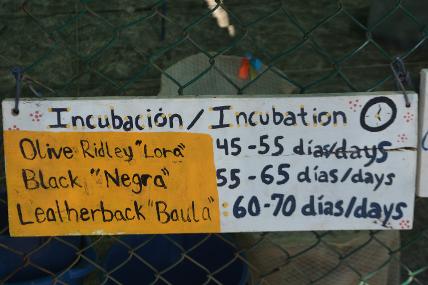 Incubación / Incubation
Olive Ridley "Lora" 45-55 días/days
Black "Negra" 55-65 días/days
Leatherback "Baula" : 60-70 días/days